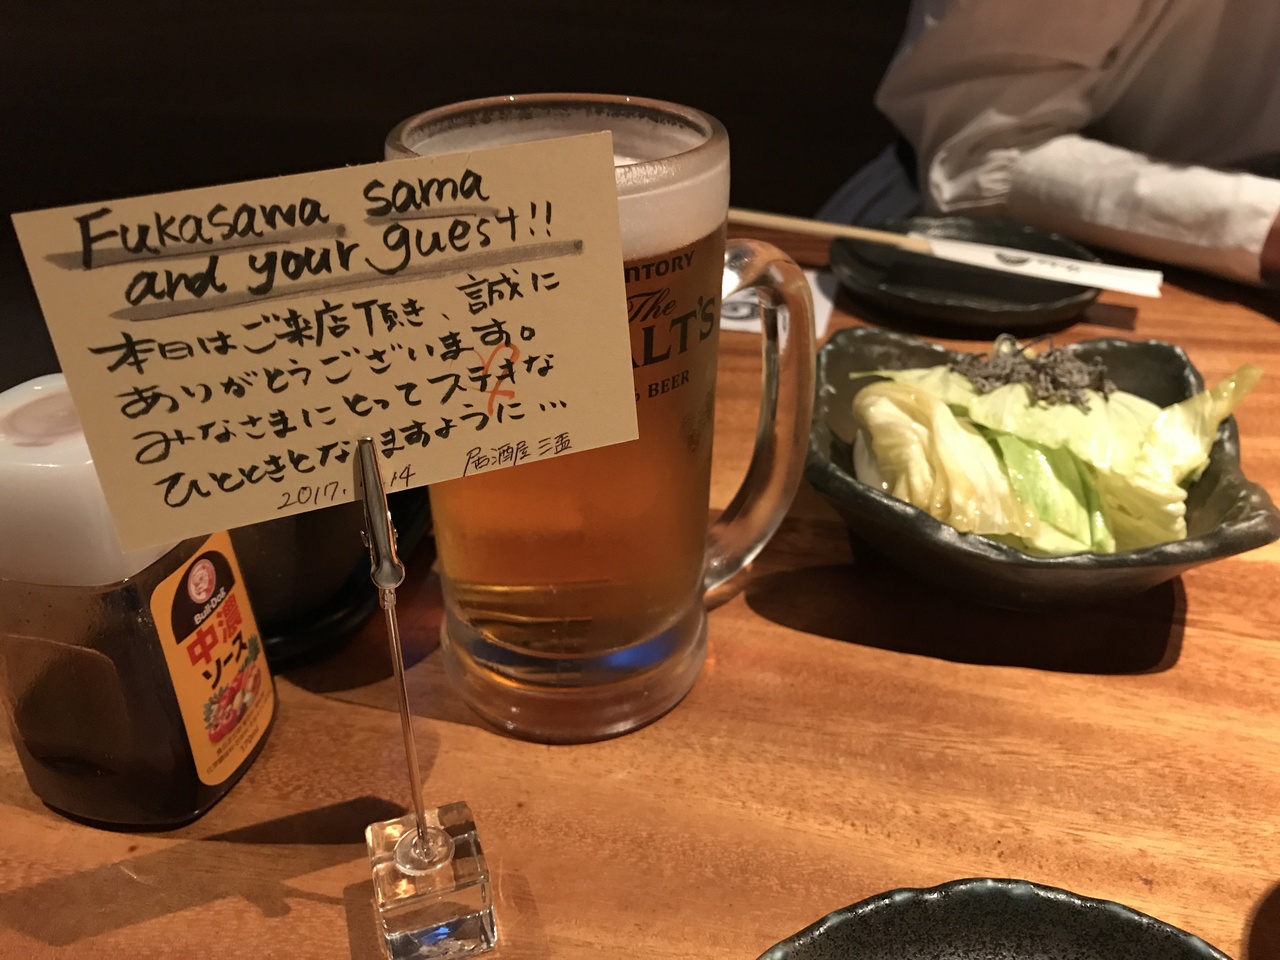 Fukasawa sama
and your guest!!
本日はご来店頂き、誠に
ありがとうございます。
みなさまにとってステキな
ひとときとなますように…
2017. 14
居酒屋 三盃
SUNTORY
The
MALT'S
BEER
Bull-Dog
中濃
ソース